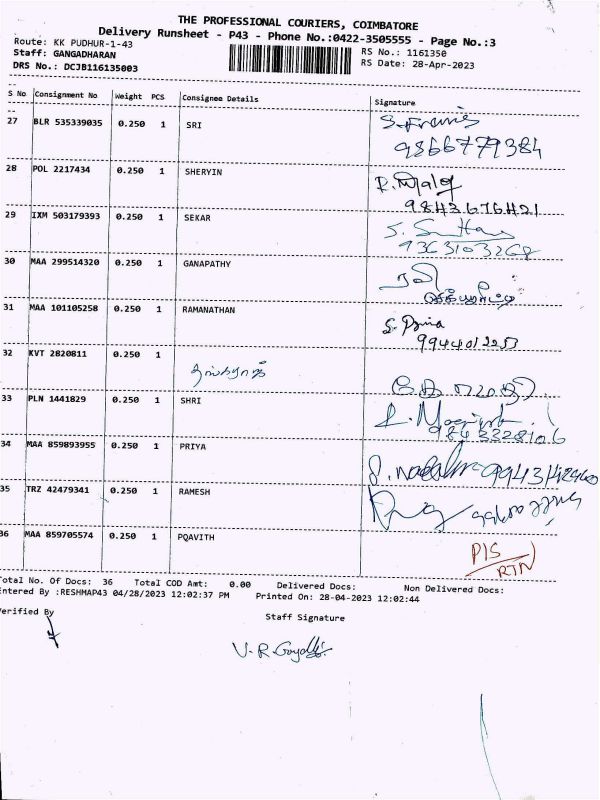 THE PROFESSIONAL COURIERS, COIMBATORE
Delivery Runsheet - P43 - Phone No.:0422-3505555 - Page No.:3
Route: KK PUDHUR-1-43 RS No.: 1161350
Staff: GANGADHARAN RS Date: 28-Apr-2023
DRS No.: DCJB116135003
S No Consignment No Weight PCS Consignee Details Signature
27 BLR 535339035 0.250 1 SRI S. Francis
9866779384
28 POL 2217434 0.250 1 SHERYIN
9843676421
29 IXM 503179393 0.250 1 SEKAR
9363103268
30 MAA 299514320 0.250 1 GANAPATHY ரவி
31 MAA 101105258 0.250 1 RAMANATHAN
9944012253
32 KVT 2820811 0.250 1
33 PLN 1441829 0.250 1 SHRI
9843328106
34 MAA 859893955 0.250 1 PRIYA
35 TRZ 42479341 0.250 1 RAMESH
36 MAA 859705574 0.250 1 PQAVITH PIS
RTN
Total No. Of Docs: 36 Total COD Amt: 0.00 Delivered Docs: Non Delivered Docs:
Entered By :RESHMAP43 04/28/2023 12:02:37 PM Printed On: 28-04-2023 12:02:44
Verified By Staff Signature